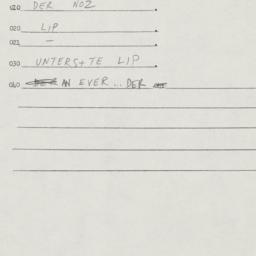 010 DER NOZ
020 LIP
021 —
030 UNTERS+TE LIP
040 AN EVER... DER